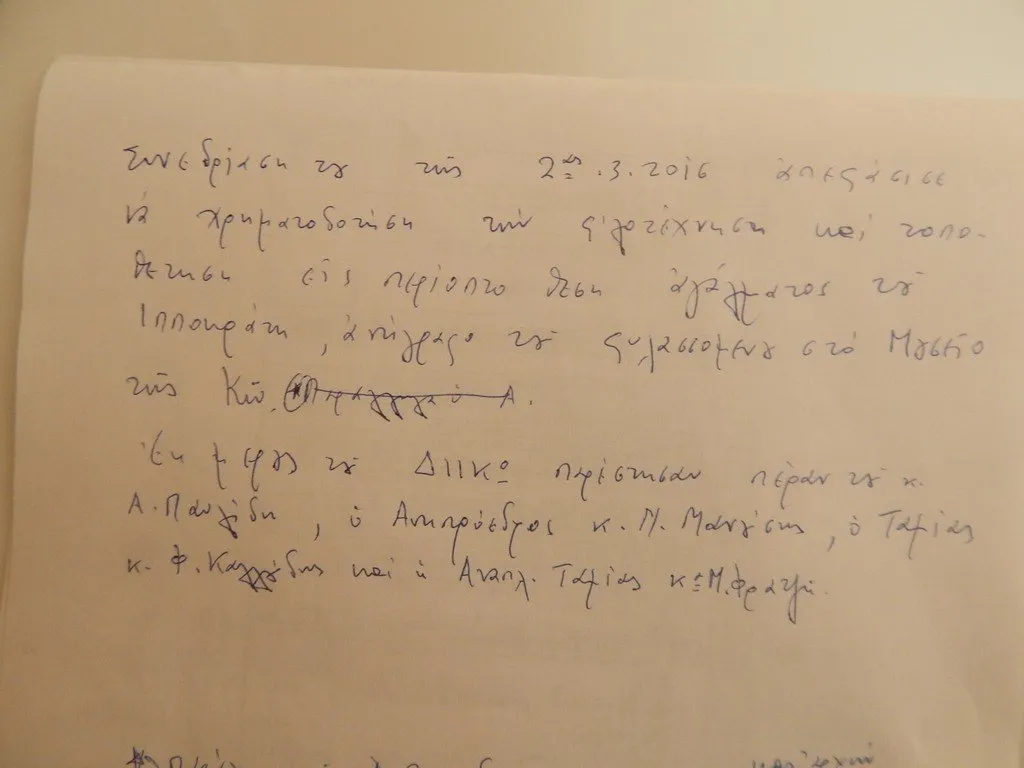 Συνεδρίαση του τῆς 2ας.3.2015 ἀπεφάσισε
νά χρηματοδοτήση τήν φιλοτέχνηση καί τοπο-
θέτηση εἰς περίοπτο θέση ἀγάλματος τοῦ
Ἱπποκράτη, ἀντίγραφο τοῦ φυλασσομένου στό Μουσεῖο
τῆς Κῶ.
Ἐκ μέρους τοῦ ΔΙΙΚο παρέστησαν πέραν τοῦ κ.
Α. Παυλίδη, ὁ Αντιπρόεδρος κ. Μ. Μανλέσης, ὁ Ταμίας
κ. Φ. Καλλίδης καί ἡ Αναπλ. Ταμίας κα Μ. Φρατζῆ.